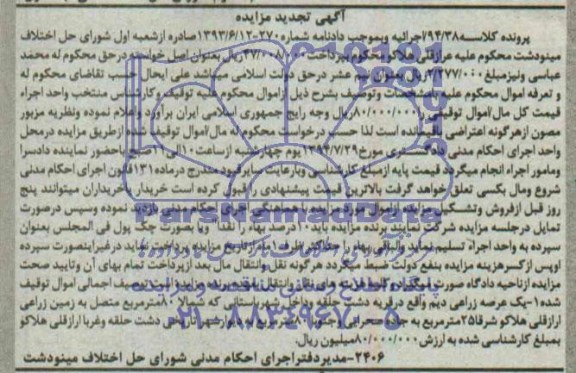 آگهی تجدید مزایده
پرونده کلاسه ۹۴/۳۸/اجرائیه وبموجب دادنامه شماره ۲۷۰-۱۳۹۳/۶/۱۲ صادره ازشعبه اول شورای حل اختلاف
مینودشت محکوم علیه عزازقلی هلاکو محکوم پرداخت ریال بعنوان اصل خواسته درحق محکوم له محمد
عباسی ونیزمبلغ ریال بعنوان نیم عشر درحق دولت اسلامی میباشد علی ایحال حسب تقاضای محکوم له
و تعرفه اموال محکوم علیه بامشخصات وتوصیف بشرح ذیل ازاموال محکوم علیه توقیف وکارشناس منتخب واحد اجراء
قیمت کل مال/اموال توقیفی را ۸۰/۰۰۰/۰۰۰ریال وجه رایج جمهوری اسلامی ایران برآورد واعلام نموده ونظریه مزبور
مصون ازهرگونه اعتراضی باقیمانده است لذا حسب درخواست محکوم له مال/اموال توقیف شده ازطریق مزایده درمحل
واحد اجرای احکام مدنی دادگستری مورخ ۱۳۹۴/۷/۲۹ یوم چهارشنبه ازساعت ۱۰الی ۱۱صبح باحضور نماینده دادسرا
ومامور اجراء انجام میگردد قیمت پایه ازمبلغ کارشناسی وبارعایت سایرقیود مندرج درماده ۱۳۱قانون اجرای احکام مدنی
شروع ومال بکسی تعلق خواهد گرفت بالاترین قیمت پیشنهادی را قبول کرده است خریدار یاخریداران میتوانند پنج
روز قبل ازفروش وتشکیل مزایده ازاموال مورد مزایده باهماهنگی اجرای احکام مدنی بازدید نموده وسپس درصورت
تمایل درجلسه مزایده شرکت نمایند برنده مزایده باید ۱۰درصد بهاء را نقدا ویا بصورت چک پول فی المجلس بعنوان
سپرده به واحد اجراء تسلیم نماید والباقی بهاء را حداکثر ظرف ۱ماه ازتاریخ مزایده پرداخت نماید درغیراینصورت سپرده
اوپس ازکسرهزینه مزایده بنفع دولت ضبط میگردد هرگونه نقل وانتقال مال بعد ازپرداخت تمام بهای آن وتایید صحت
مزایده ازناحیه دادگاه صورت میگیرد کلیه هزینه های نقل وانتقال توصیف اجمالی اموال توقیف
شده ۱-یک عرصه زراعی دیم واقع درقریه دشت حلقه وداخل شهرباستانی که شمالا ۸۰مترمربع متصل به زمین زراعی
ارازقلی هلاکو شرقا۲۵مترمربع به جاده صحرایی وجنوبا ۸۰مترمربع به دیوارشهر تاریخی دشت حلقه وغربا ارازقلی هلاکو
بمبلغ کارشناسی شده به ارزش ۸۰/۰۰۰/۰۰۰میلیون ریال.
۲۴۰۶-مدیردفتراجرای احکام مدنی شورای حل اختلاف مینودشت
ParsNamadData
۰۲۱-۸۸۳۴۹۶۷۰-۵